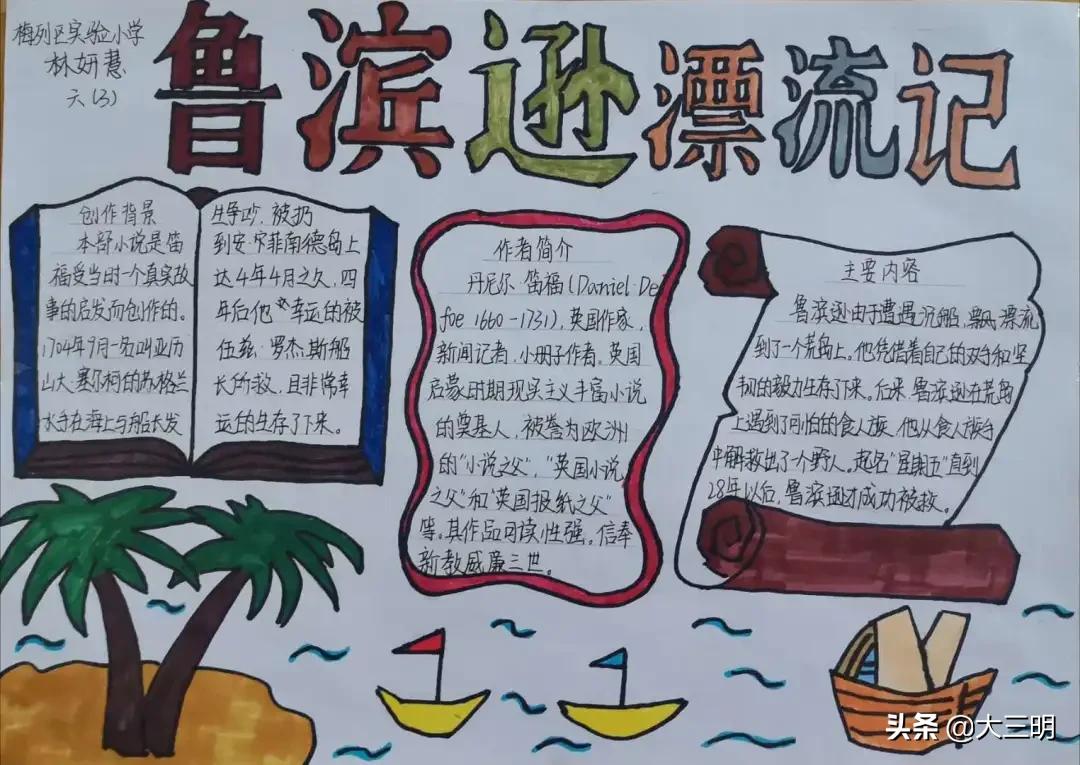 梅列区实验小学
林妍慧
六(3)
鲁滨逊漂流记
创作背景
本部小说是笛
福受当时一个真实故
事的启发而创作的。
1704年9月一名叫亚历
山大·塞尔柯的苏格兰
水手在海上与船长发
生争吵,被扔
到安·菲南德岛上
达4年4月之久,四
年后他幸运的被
伍兹·罗杰斯船
长所救,且非常幸
运的生存了下来。
作者简介
丹尼尔·笛福(Daniel·De
foe 1660-1731),英国作家,
新闻记者,小册子作者。英国
启蒙时期现实主义丰富小说
的奠基人,被誉为欧洲
的"小说之父","英国小说
之父"和"英国报纸之父"
等。其作品可读性强。信奉
新教威廉三世。
主要内容
鲁滨逊由于遭遇沉船,飘漂流
到了一个荒岛上。他凭借着自己的双手和坚
韧的毅力生存了下来。后来,鲁滨逊在荒岛
上遇到了可怕的食人族,他从食人族手
中解救出了一个野人。起名"星期五"直到
28年以后,鲁滨逊才成功被救。
头条 @大三明